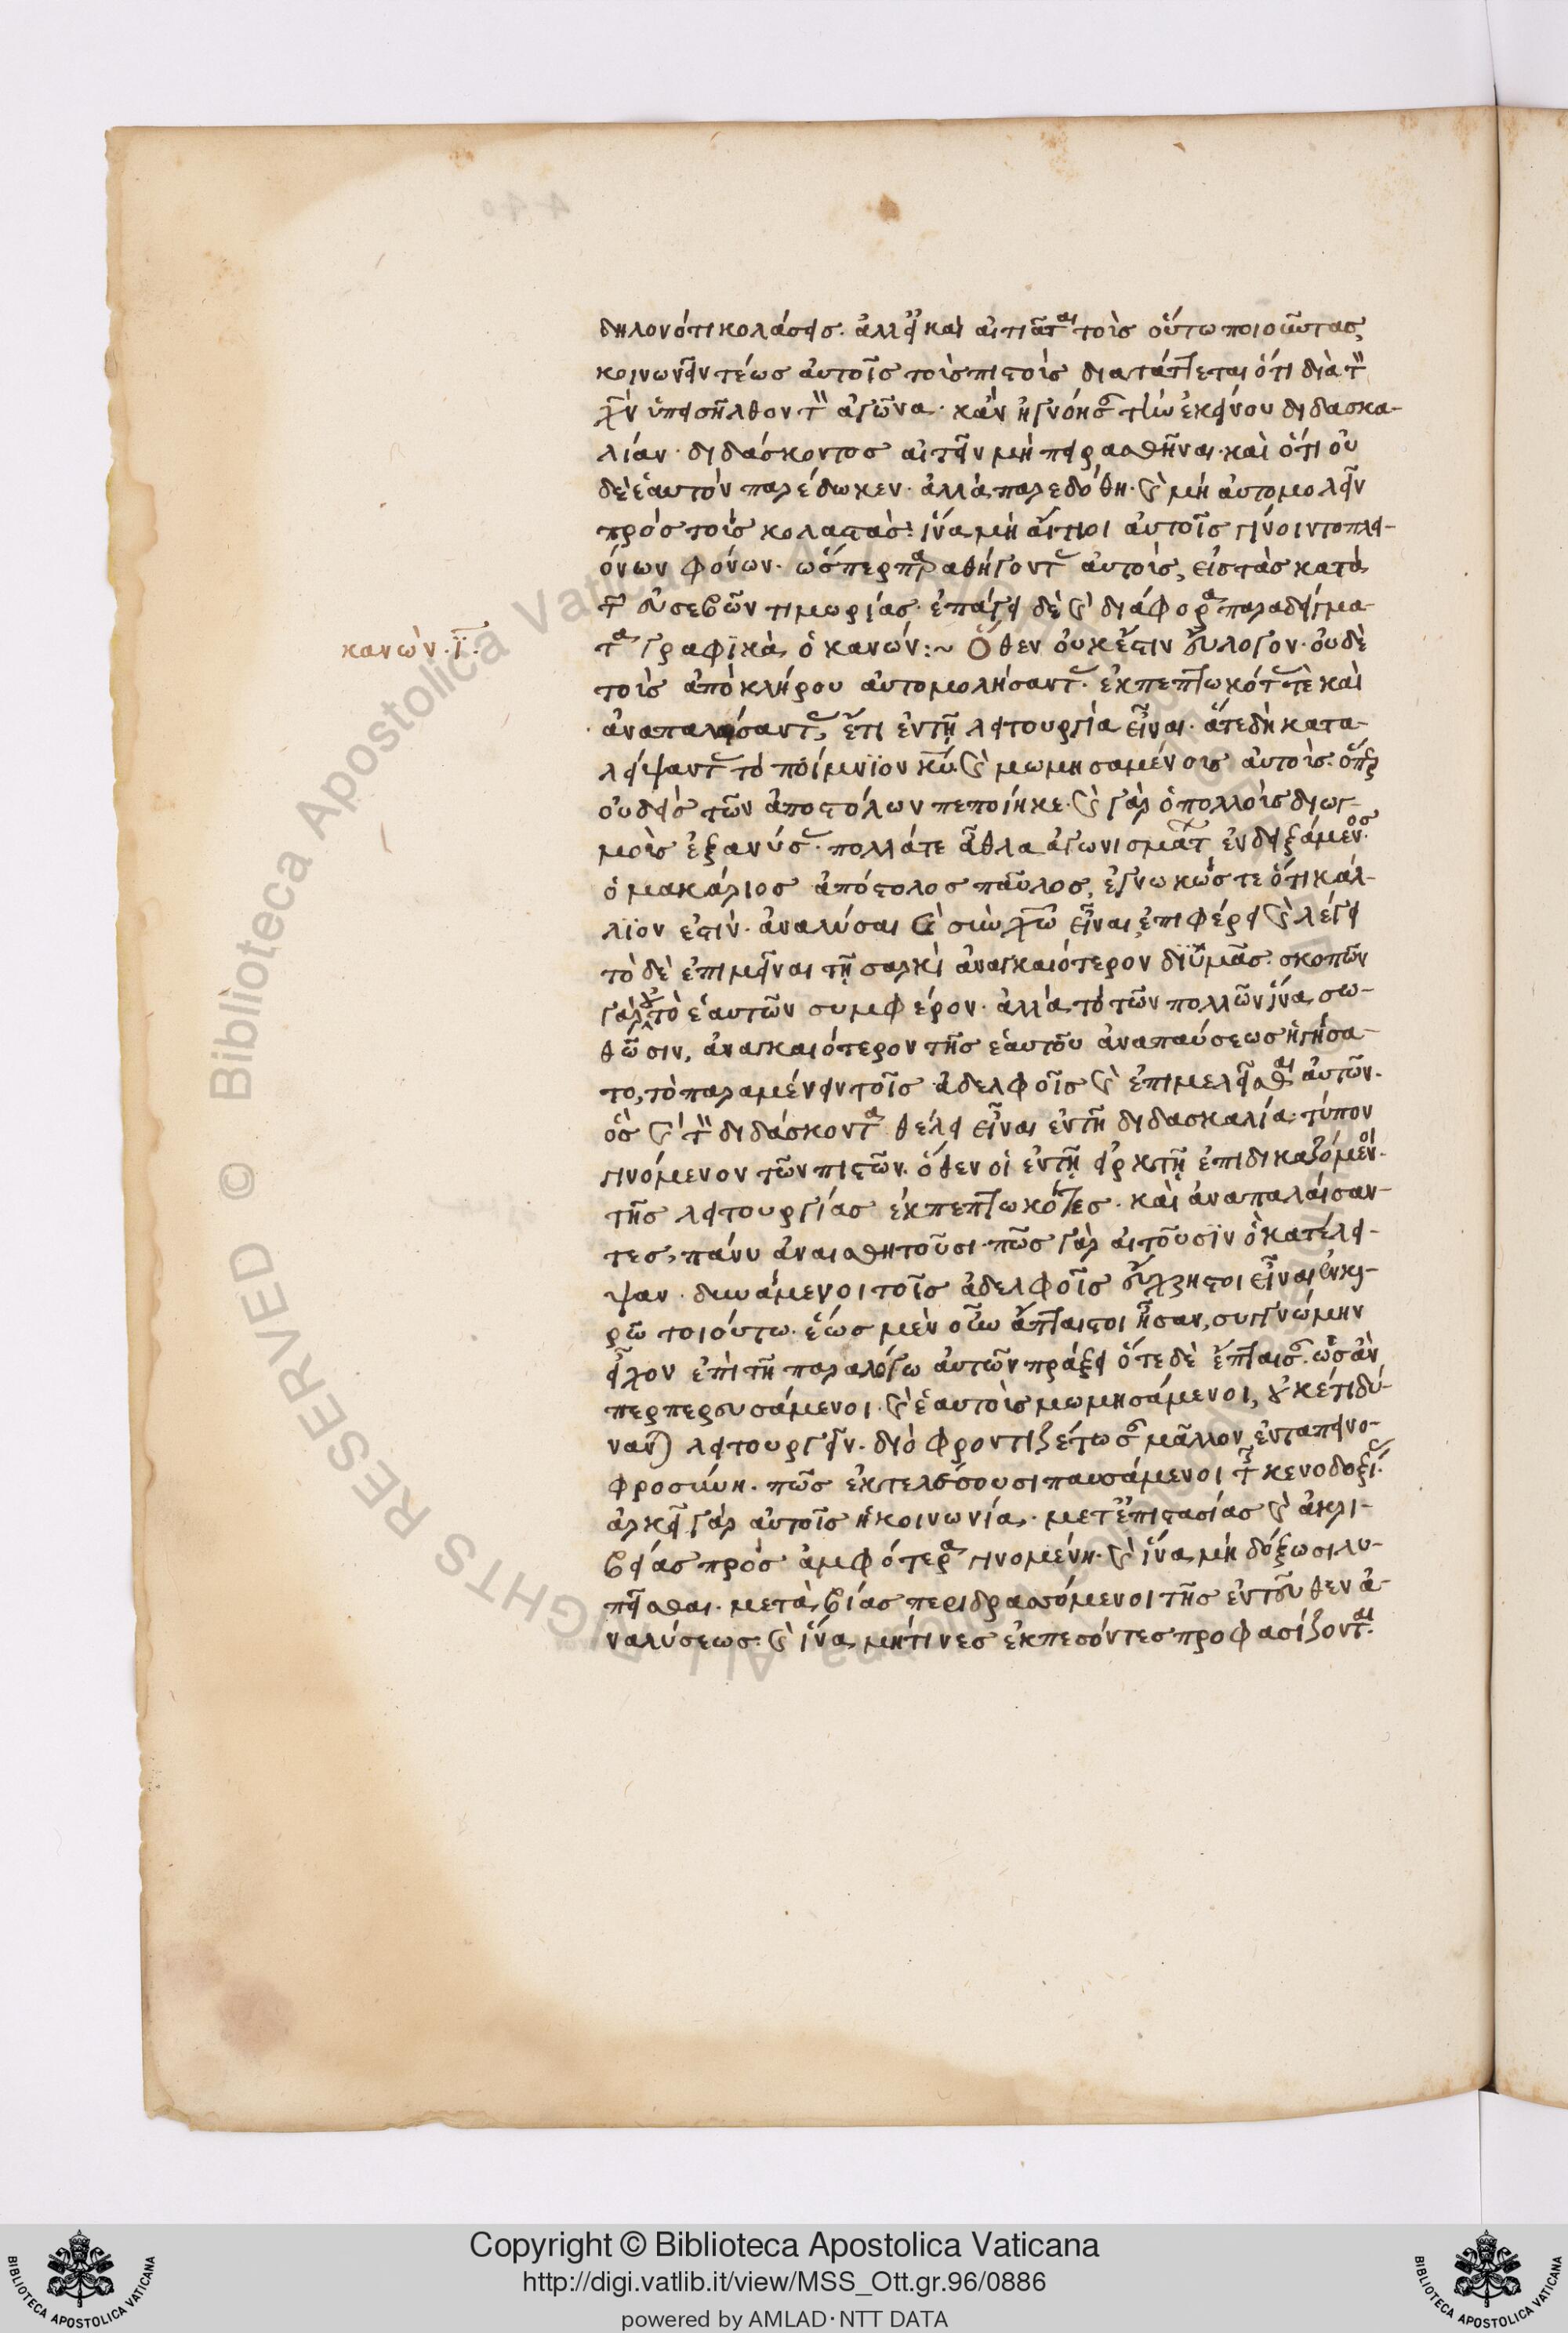 δηλονότι κολάσεις. ἀλλ' εἰ καὶ αἰτιᾶται τοὺς οὕτω ποιοῦντας,
κοινωνεῖν τέως αὐτοῖς τοὺς πιστοὺς διατάττεται ὅτι διὰ τὸν
χν ὑπεισῆλθον τὸν ἀγῶνα. κἂν ἠγνόησαν τὴν ἐκείνου διδασκα-
λίαν. διδάσκοντος αἰτεῖν μὴ πειρασθῆναι. καὶ ὅτι οὐ
δὲ ἑαυτὸν παρέδωκεν. ἀλλὰ παρεδόθη. καὶ μὴ αὐτομολεῖν
πρὸς τοὺς κολαστάς: ἵνα μὴ αἴτιοι αὐτοῖς γίνοιντο πλει-
όνων φόνων. ὥσπερ παραθήγοντες αὐτοὺς, εἰς τὰς κατὰ
τῶν εὐσεβῶν τιμωρίας. ἐπάγει δὲ καὶ διάφορα παραδείγμα-
τα γραφϊκὰ ὁ κανών:~ Ὅθεν οὐκ ἔστιν εὔλογον. οὐδὲ
κανὼν. ϊ.
τοὺς ἀπὸ κλήρου αὐτομολήσαντας. ἐκπεπτωκότας τὲ καὶ
ἀναπαλαίσαντας, ἔτι ἐν τῇ λειτουργία εἶναι. ἅτε δὴ κατα-
λείψαντας τὸ ποίμνϊον κυ. καὶ μωμησαμένους αὐτούς. ὅπερ
οὐδεὶς τῶν ἀποστόλων πεποίηκε. καὶ γὰρ ὁ πολλοὺς διωγ-
μοὺς ἐξανύσας. πολλά τε ἆθλα ἀγωνισμάτων ἐνδειξάμενος.
ὁ μακάριος ἀπόστολος παῦλος, ἐγνωκώς τε ὅτι κάλ-
λϊον ἐστὶν. ἀναλύσαι καὶ σὺν χω εἶναι, ἐπιφέρει καὶ λέγει
τὸ δὲ ἐπιμεῖναι τῇ σαρκὶ ἀναγκαιότερον δϊ ὑμᾶς. σκοπῶν
γὰρ οὐ τὸ ἑαυτῶν συμφέρον. ἀλλὰ τὸ τῶν πολλῶν ἵνα σω-
θῶσιν, ἀναγκαιότερον τῆς ἑαυτοῦ ἀναπαύσεως ἡγήσα-
το, τὸ παραμένειν τοῖς ἀδελφοῖς καὶ ἐπιμελεῖσθαι αὐτῶν.
ὃς καὶ τὸν διδάσκοντα θέλει εἶναι ἐν τῇ διδασκαλία. τύπον
γινόμενον τῶν πιστῶν. ὅθεν οἱ ἐν τῇ εἱρκτῇ ἐπιδικαζόμενοι.
τῆς λειτουργίας ἐκπεπτωκότες. καὶ ἀναπαλαίσαν-
τες, πάνυ ἀναισθητοῦσι. πῶς γὰρ αἰτοῦσϊν ὃ κατέλει-
ψαν. δυνάμενοι τοῖς ἀδελφοῖς εὔχρηστοι εἶναι ἐν και-
ρῷ τοιούτω. ἕως μὲν οὖν ἄπταιστοι ἦσαν, συγγνώμην
εἶχον ἐπὶ τῇ παραλόγω αὐτῶν πράξει ὅτε δὲ ἔπταισαν. ὡς ἂν
περπερευσάμενοι. καὶ ἑαυτοὺς μωμησάμενοι, οὐκέτι δύ-
νανται λειτουργεῖν. διὸ φροντιζέτωσαν μᾶλλον, ἐν ταπεινο-
φροσύνη. πῶς ἐκτελέσουσι παυσάμενοι τῆς κενοδοξίας.
ἀρκεῖ γὰρ αὐτοῖς ἡ κοινωνία. μετ' ἐπιστασίας καὶ ἀκρι-
βείας πρὸς ἀμφότερα γινομένη. καὶ ἵνα μὴ δόξωσι λυ-
πεῖσθαι. μετὰ βίας περιδρασσόμενοι τῆς ἐντεῦθεν ἀ-
ναλύσεως. καὶ ἵνα μή τινες ἐκπεσόντες προφασίζονται.
Copyright © Biblioteca Apostolica Vaticana
http://digi.vatlib.it/view/MSS_Ott.gr.96/0886
powered by AMLAD·NTT DATA